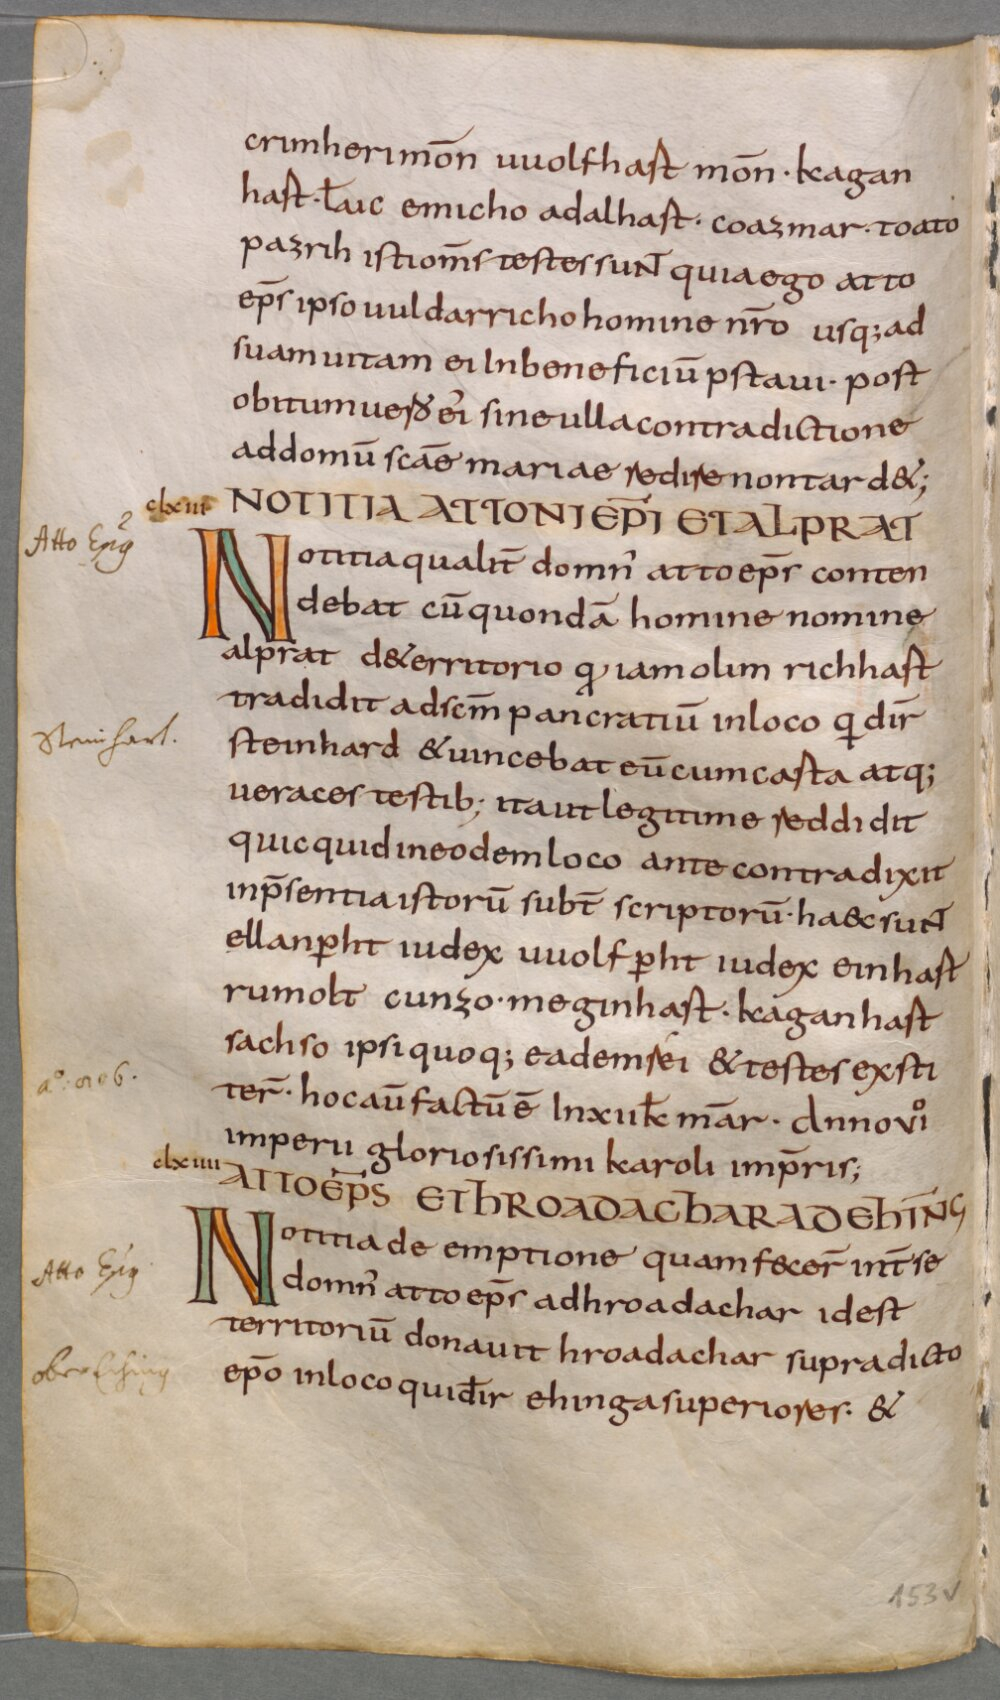 crimheri mōn uuolfhast mōn · kagan
hast · l̄aic emicho adalhast · coazmar · toato
pazrih isti om̄s testes suNT quia ego atto
ep̄s ipso uuldarricho homine nr̄o usq; ad
suam uitam ei In beneficiū p̄staui · post
obitum uero ei sine ulla contradictione
ad domū scāe mariae redire non tard&;
clxiii NOTITIA ATTONI EP̄I ET ALPRAT
Atto Epīg
Notitia qualit̄ domn̄ atto ep̄s conten
debat cū quondā homine nomine
alprat de t&erritorio qi iam olim richhast
tradidit ad scm̄ pancratiū in loco q dir̄
Steinhart.
steinhard & uincebat eū cum casta atq;
ueraces testib; ita ut legitime reddidit
quicquid in eodem loco ante contradixit
in p̄sentia istorū subt̄ scriptorū · haec suNT
ellanp̄ht iudex uuolfp̄ht iudex einhast
rumolt cunzo · meginhast · kaganhast
sachso ipsi quoq; eadem rei & testes exsti
aº: 806.
ter̄ · hoc aū factū ē In xii kƚ mār · Anno vi
imperii gloriosissimi karoli imp̄ris;
clxiiii ATTO EP̄S ET HROADACHAR AD EHĪNG
Notitia de emptione quam fecer̄ int̄ se
Atto Epīg
domn̄ atto ep̄s ad hroadachar id est
territoriū donauit hroadachar supradicto
ober Ehing
ep̄o in loco qui dir̄ ehinga superiores · &
153v